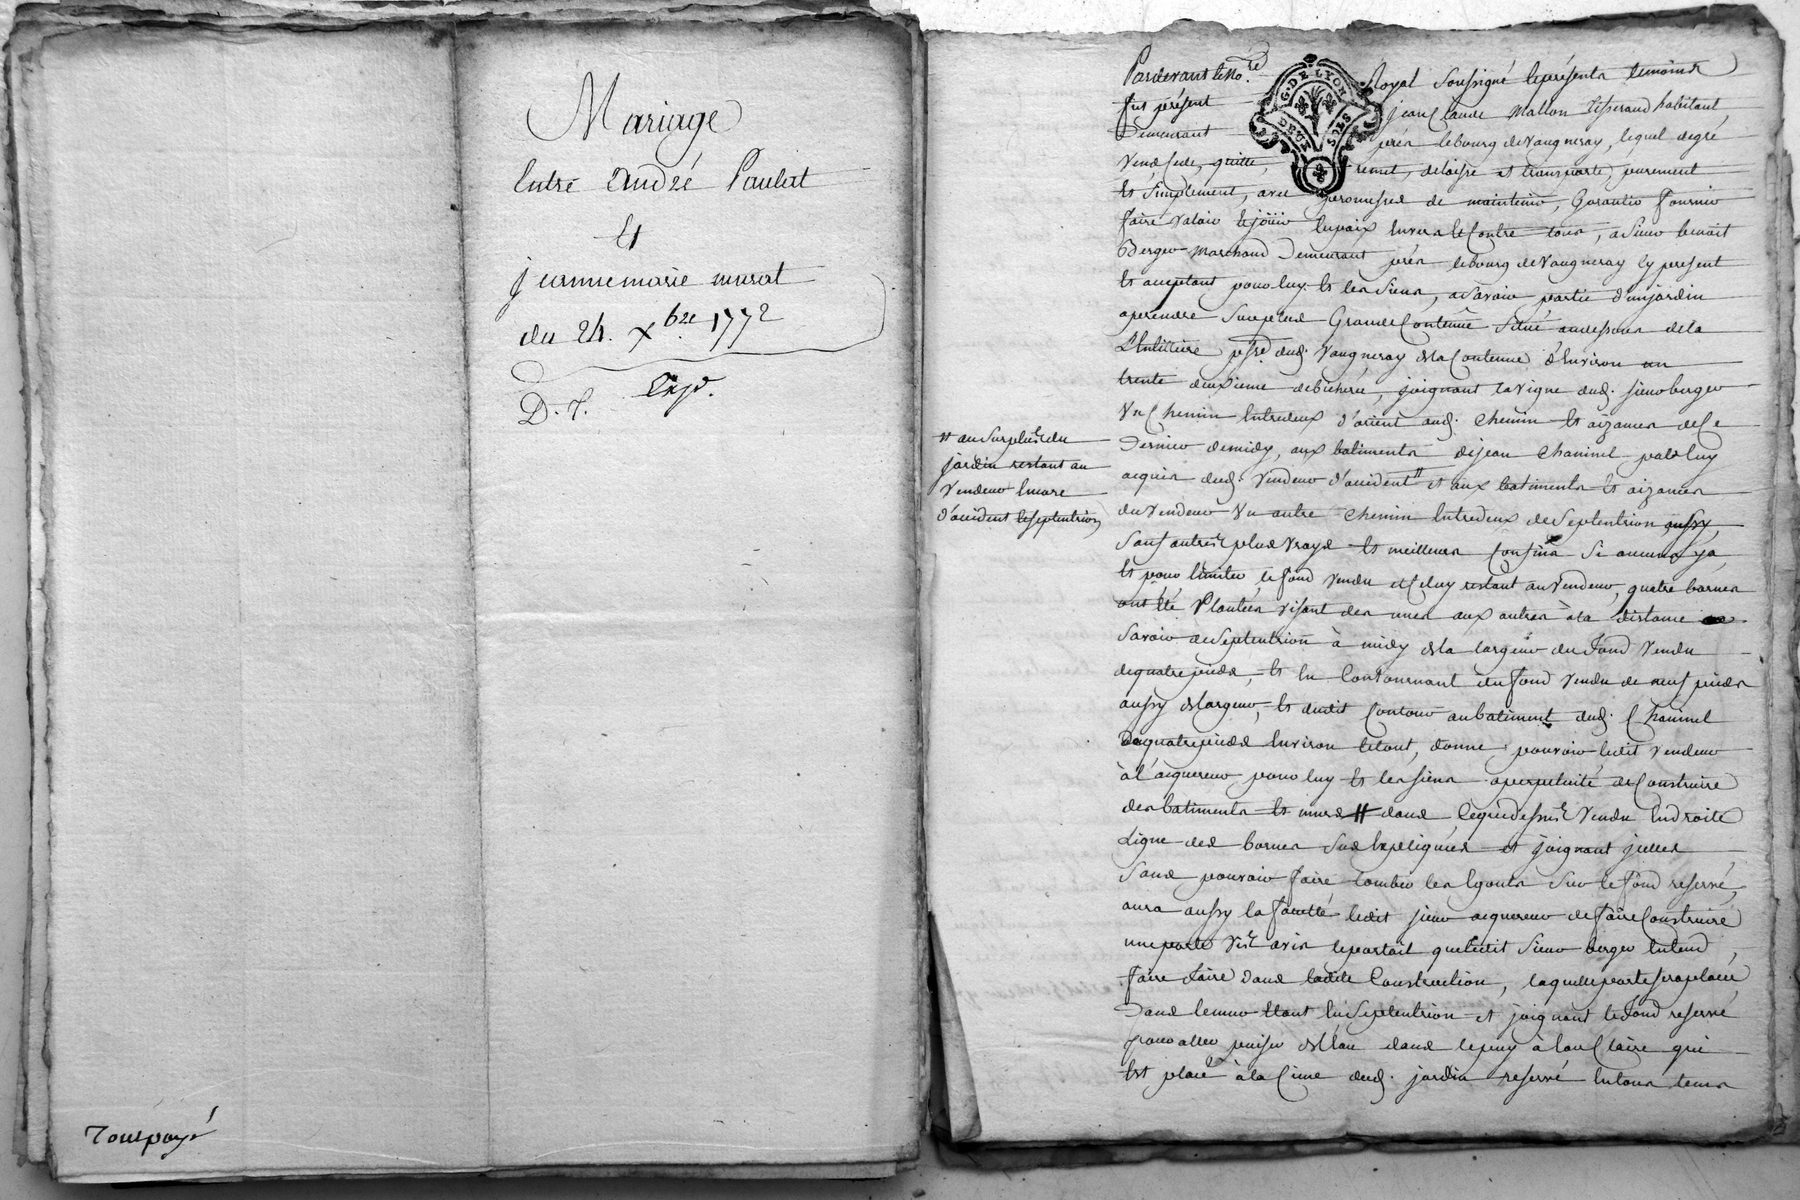 Mariage
Entre André Paulat
Et
jeanne marie murat
du 24. Xbre. 1772
D. T. Exp.
Tout payé
G. DE LYON
Pardevant le No.re Royal soussigné le présents temoins
fut présent jean Claude Matton habitant
Demeurant près le bourg de Vaugneray, lequel de gré
Vend Cede, quitte, remet, delaisse et transporte purement
Et Simplement, avec promesse de maintenir, Garantir fournir
faire Valoir Et joüir En paix Envers Et Contre tous, a Sieur benoit
Berger Marchand Demeurant près le bourg de Vaugneray Cy present
Et acceptant pour luy Et les Siens, a Savoir partie d'un jardin
a prendre Sur plus Grande Contenüe Situé au dessous de la
psse dud. Vaugneray de la Contenue d'Environ un
trente deuxieme de bicherée, joignant la Vigne dud. sieur berger
Un Chemin Entredeux d'orient aud. Chemin Et aizances de Ce
Dernier de midy, aux batiments de jean Chaninel par luy
acquis dud. Vendeur d'occident et aux batiments Et aizances
du Vendeur Un autre Chemin Entredeux de Septentrion aussy
Sauf autres plus Vrays Et meilleurs Confins Si aucuns y a,
Et pour limiter le fond Vendu et Celuy restant au Vendeur, quatre bornes
ont Eté Plantées Visant des unes aux autres à la distance
Savoir de Septentrion à midy de la largeur du fond Vendu
de quatre pieds, Et En Contournant du fond Vendu de neuf pieds
aussy de largeur, Et dudit Contour au batiment dud. Chaninel
de quatre pieds Environ Le tout, donne pouvoir ledit Vendeur
à l'acquereur pour luy Et les siens a perpetuité de Construire
des batiments Et murs dans Vendu En droite
Ligne des bornes Sus Expliquées et joignant jcelles
Sans pouvoir faire tomber les Egouts Sur le fond reservé,
aura aussy la faculté ledit sieur acquereur de faire Construire
une porte Vis avis le portail que ledit Sieur berger Entend
faire faire dans ladite Construction, laquelle porte sera placée
Dans le mur Etant En Septentrion et joignant le fond reservé
pour aller puiser de l'Eau dans le puy à Eau Claire qui
Est placé à la Cime dud. jardin reservé En tous tems
et au Surplus du
jardin restant au
Vendeur Encore
d'occident Et Septentrion